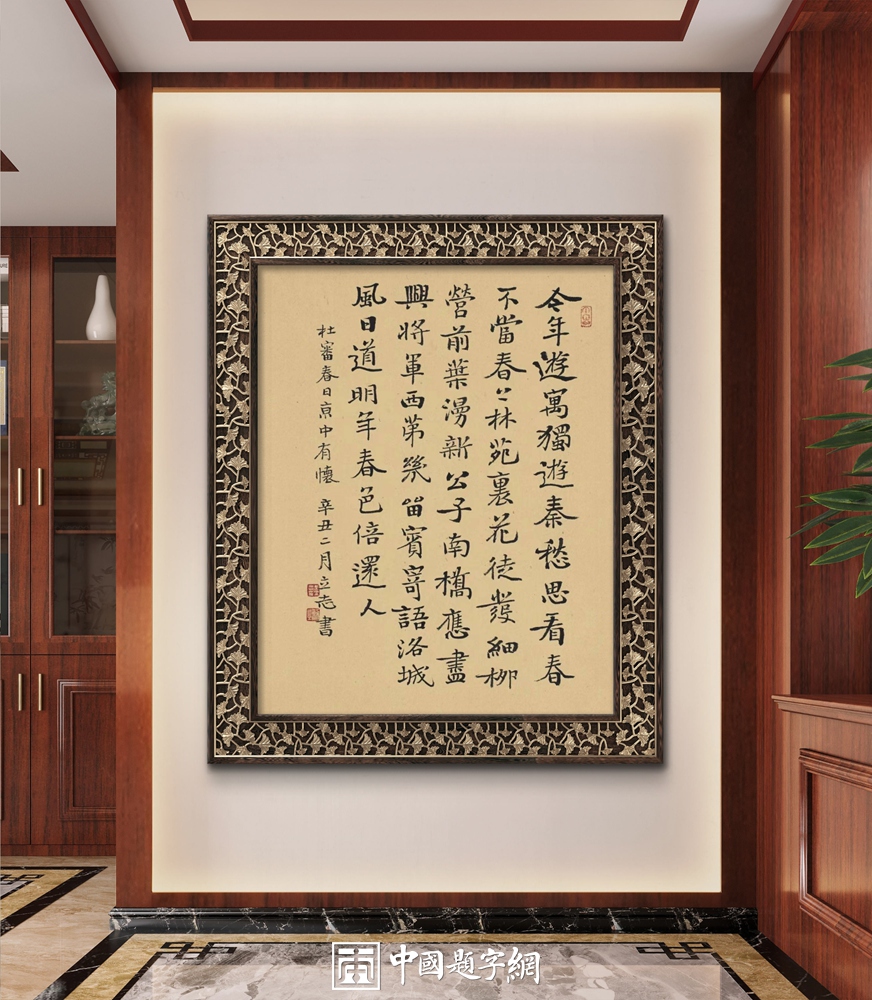 今年遊寓獨遊秦愁思看春
不當春上林苑裏花徒發細柳
營前葉漫新公子南橋應盡
興將軍西第幾留賓寄語洛城
風日道明年春色倍還人
杜審春日京中有懷 辛丑二月立志書
中國題字網